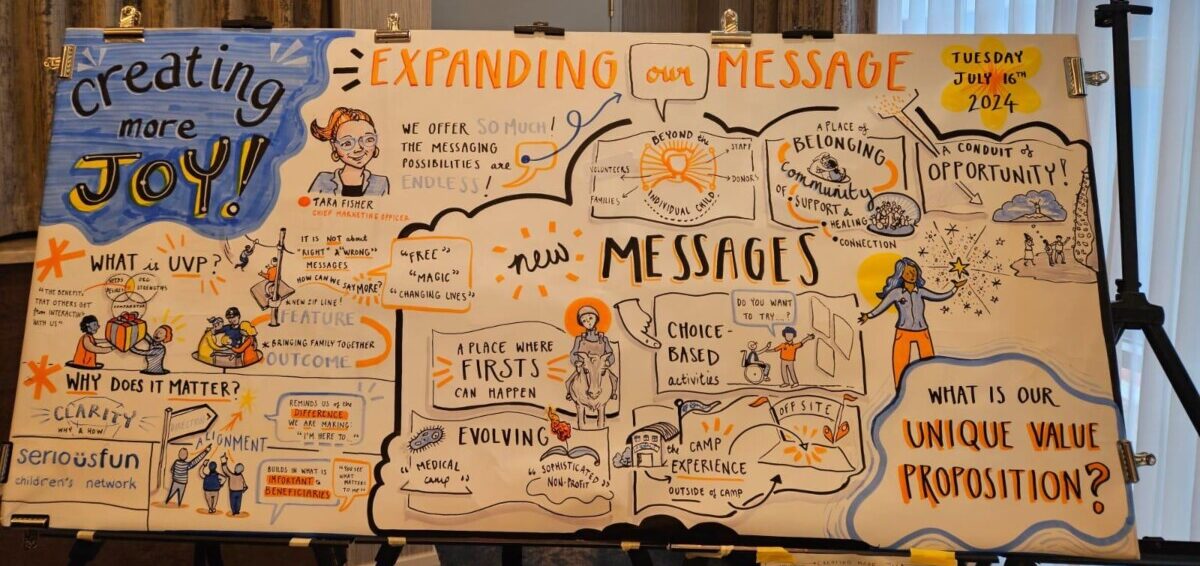 Creating
more
JOY!
EXPANDING our MESSAGE
TUESDAY
JULY 16TH
2024
WE OFFER SO MUCH!
THE MESSAGING
POSSIBILITIES are
ENDLESS!
TARA FISHER
CHIEF MARKETING OFFICER
WHAT is UVP?
"THE BENEFITS
THAT OTHERS GET
from INTERACTING
WITH US"
ORG
STRENGTHS
IT IS NOT about
"RIGHT" & "WRONG"
MESSAGES
HOW CAN WE SAY MORE?
"FREE"
"MAGIC"
"CHANGING LIVES"
NEW ZIP LINE!
FEATURE
BRINGING FAMILY TOGETHER
OUTCOME
WHY DOES IT MATTER?
CLARITY
WHY & HOW!
DIRECTION
ALIGNMENT
REMINDS US of the
DIFFERENCE
WE ARE MAKING:
"I'M HERE TO
BUILDS IN WHAT IS
IMPORTANT to
BENEFICIARIES
"YOU SEE
WHAT
MATTERS
TO ME"
seriousfun
children's network
new MESSAGES
BEYOND the
INDIVIDUAL CHILD
VOLUNTEERS
FAMILIES
STAFF
DONORS
A PLACE of
BELONGING
Community
OF SUPPORT &
HEALING
CONNECTION
A CONDUIT of
OPPORTUNITY!
A PLACE WHERE
FIRSTS
CAN HAPPEN
CHOICE-
BASED
activities
DO YOU WANT
TO TRY...?
EVOLVING
"MEDICAL
camp"
"SOPHISTICATED
NON-PROFIT"
the CAMP
EXPERIENCE
OUTSIDE of CAMP
OFF SITE
WHAT IS OUR
UNIQUE VALUE
PROPOSITION?